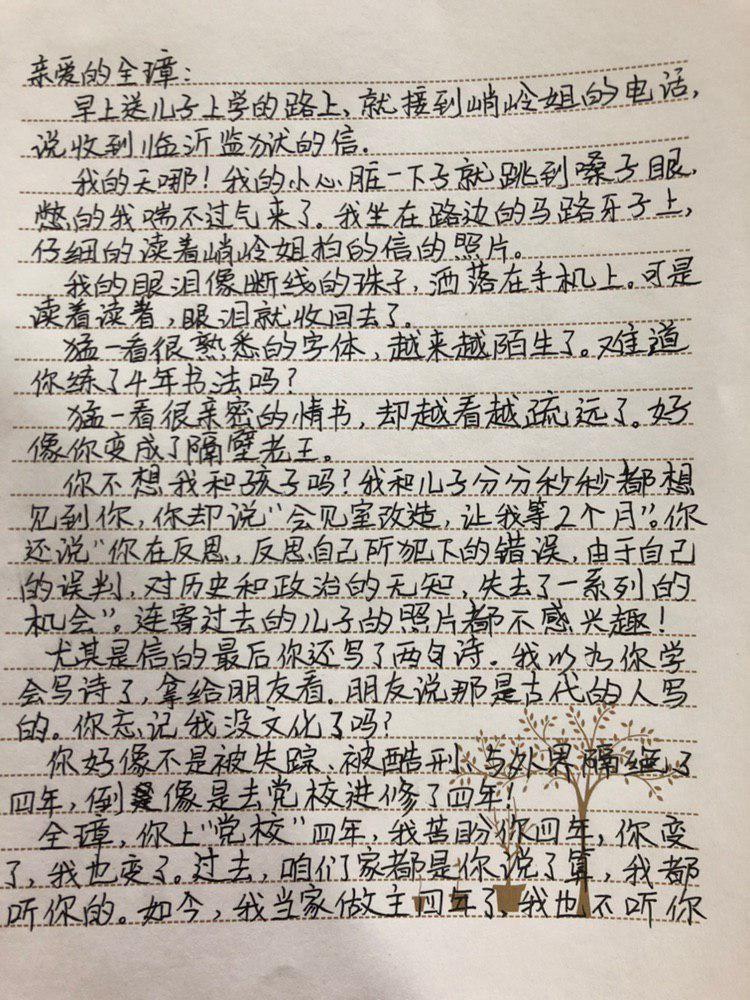 亲爱的全璋：
早上送儿子上学的路上，就接到峭岭姐的电话，
说收到临沂监狱的信。
我的天哪！我的小心脏一下子就跳到嗓子眼，
憋的我喘不过气来了。我坐在路边的马路牙子上，
仔细的读着峭岭姐拍的信的照片。
我的眼泪像断线的珠子，洒落在手机上。可是
读着读着，眼泪就收回去了。
猛一看很熟悉的字体，越来越陌生了。难道
你练了4年书法吗？
猛一看很亲密的情书，却越看越疏远了。好
像你变成了隔壁老王。
你不想我和孩子吗？我和儿子分分秒秒都想
见到你，你却说“会见室改造，让我等2个月”。你
还说“你在反思，反思自己所犯下的错误，由于自己
的误判，对历史和政治的无知，失去了一系列的
机会”。连寄过去的儿子的照片都不感兴趣！
尤其是信的最后你还写了两句诗。我以为你学
会写诗了，拿给朋友看。朋友说那是古代的人写
的。你忘记我没文化了吗？
你好像不是被失踪、被酷刑、与外界隔绝了
四年，倒像是去党校进修了四年！
全璋，你上“党校”四年，我苦盼你四年，你变
了，我也变了。过去，咱们家都是你说了算，我都
听你的。如今，我当家做主四年了，我也不听你